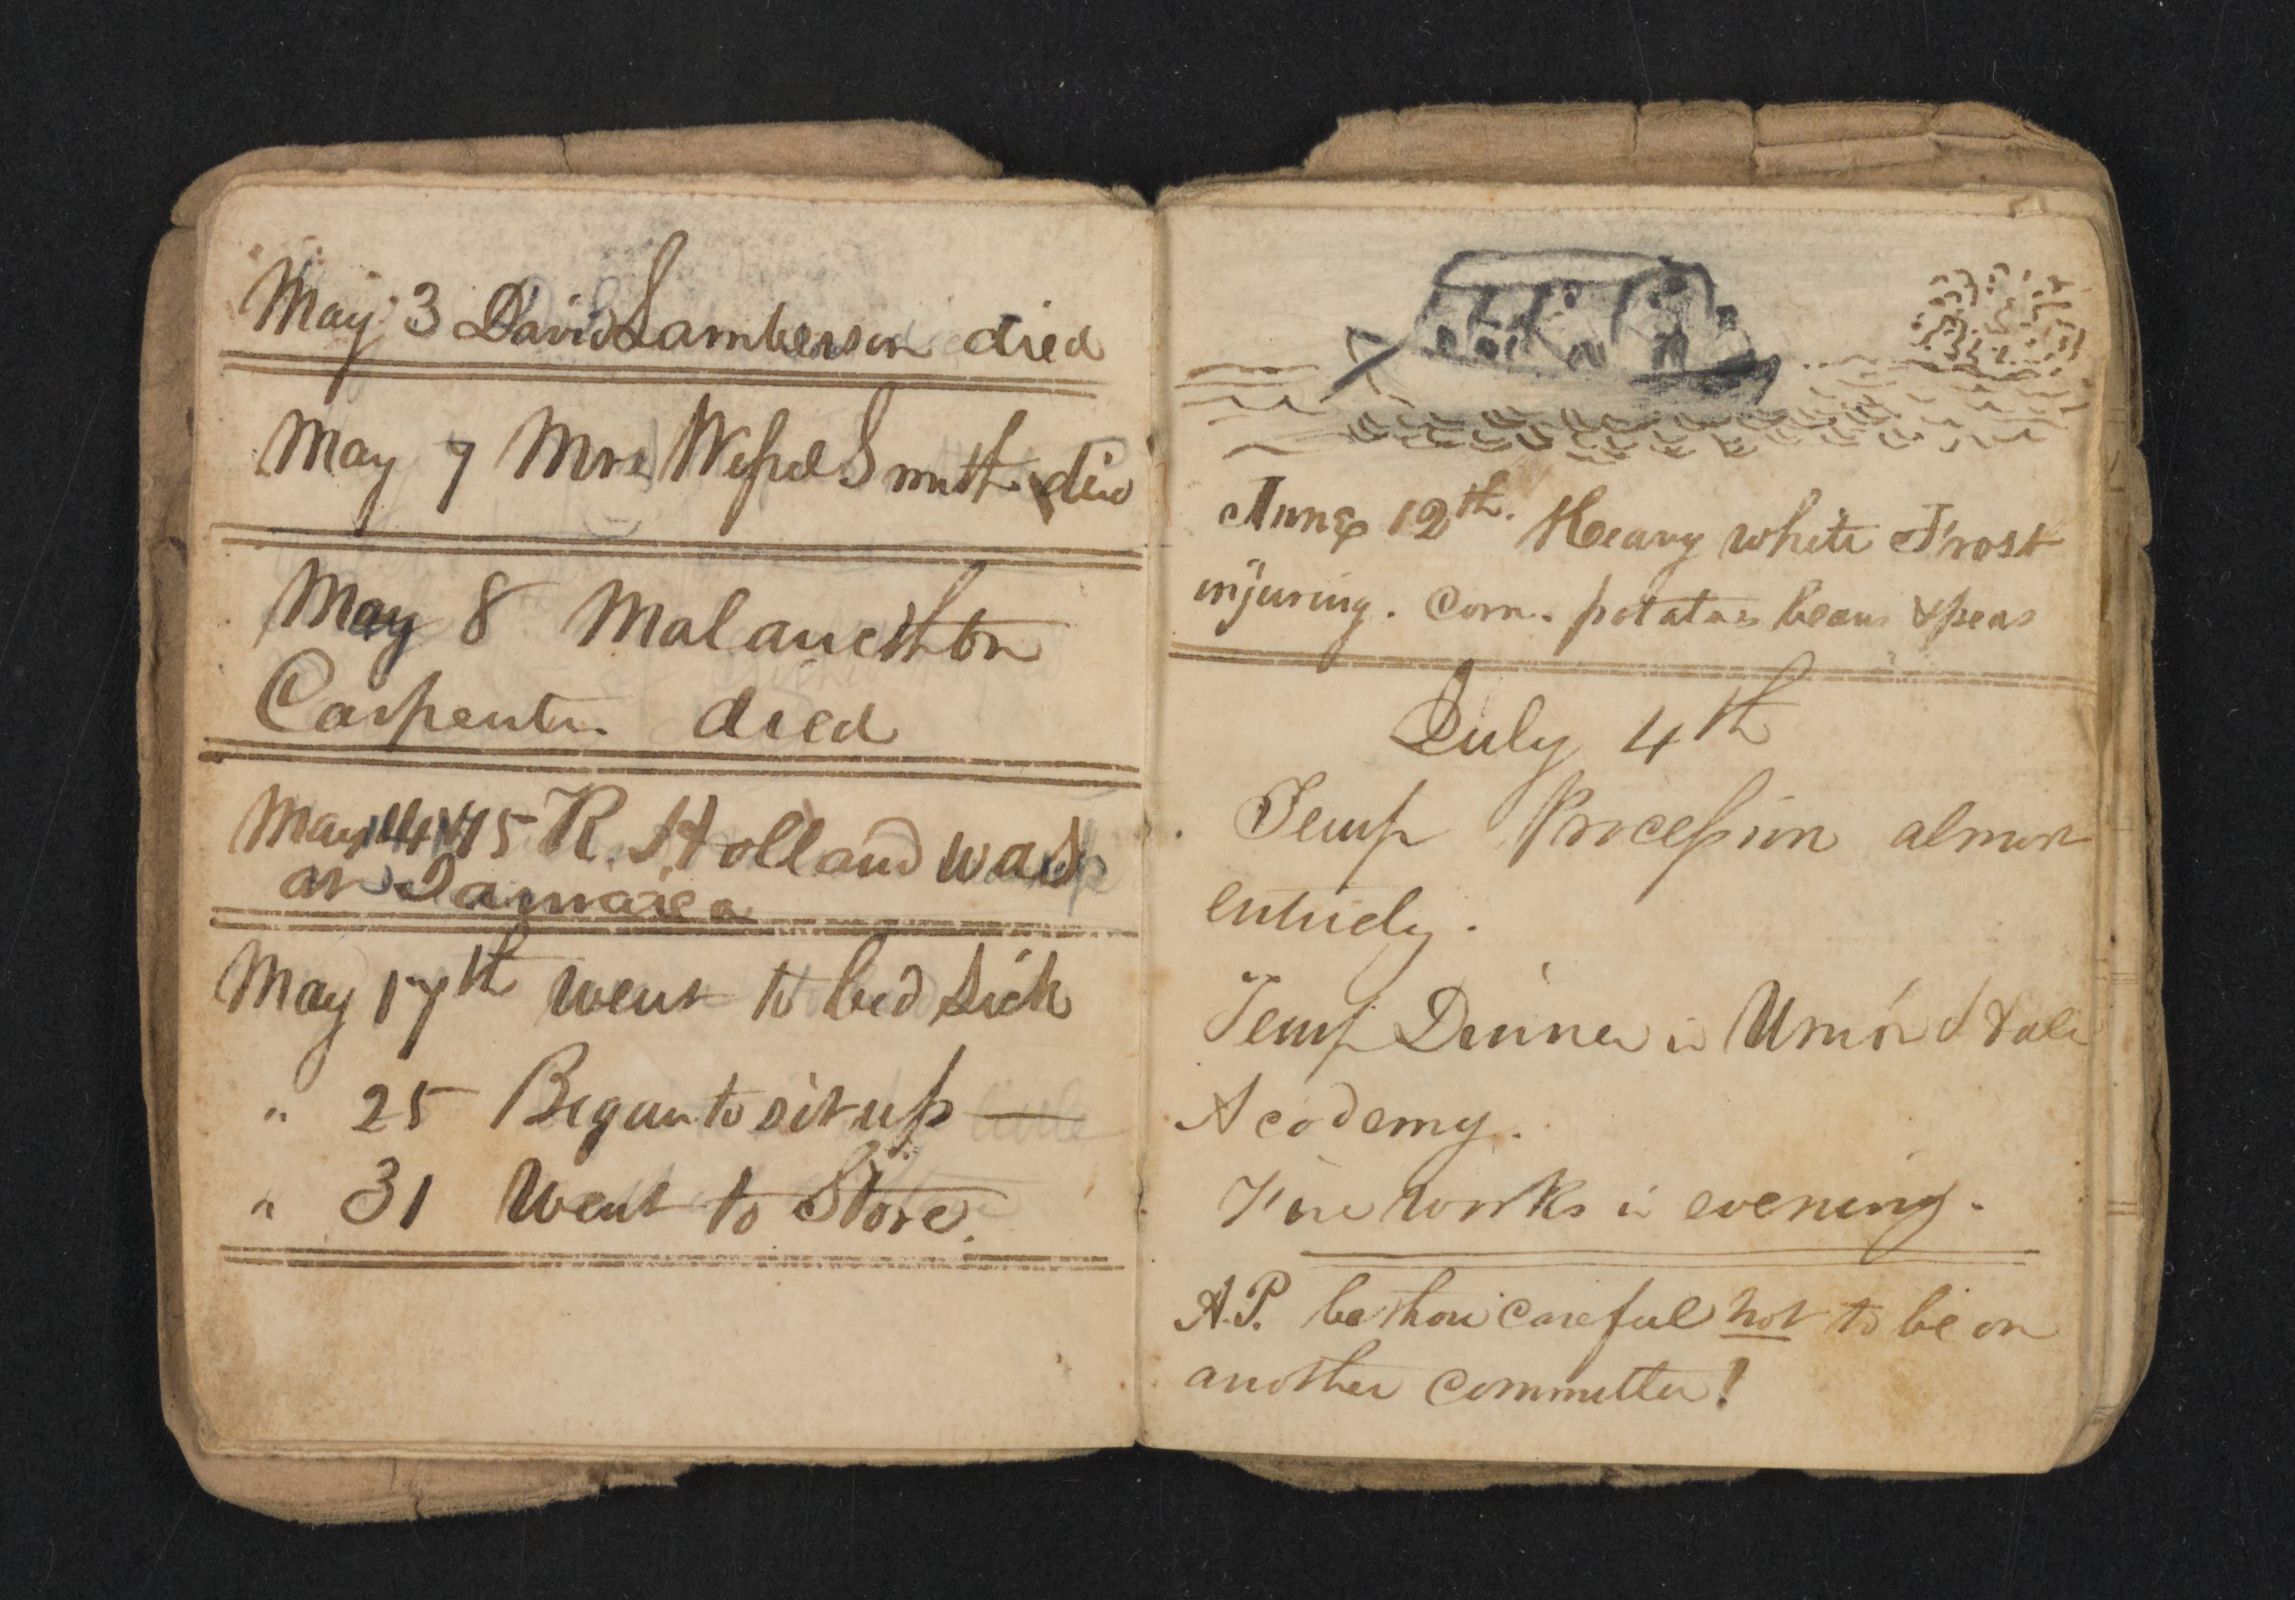 May 3 David Lamberson died
May 7 Mrs Smith died
May 8 Malancthon
Carpenter died
May 14 & 15 R. Holland was
at Jamaica
May 17th went to bed sick
" 25 Began to sit up —
" 31 Went to Store.
June 12th. Heavy white Frost
injuring. Corn. potatoes beans & peas
July 4th
Temp Procession almost
entirely.
Temp Dinner in Union Hall
Academy.
Fire works in evening.
A.P. be thou careful not to be on
another committee!